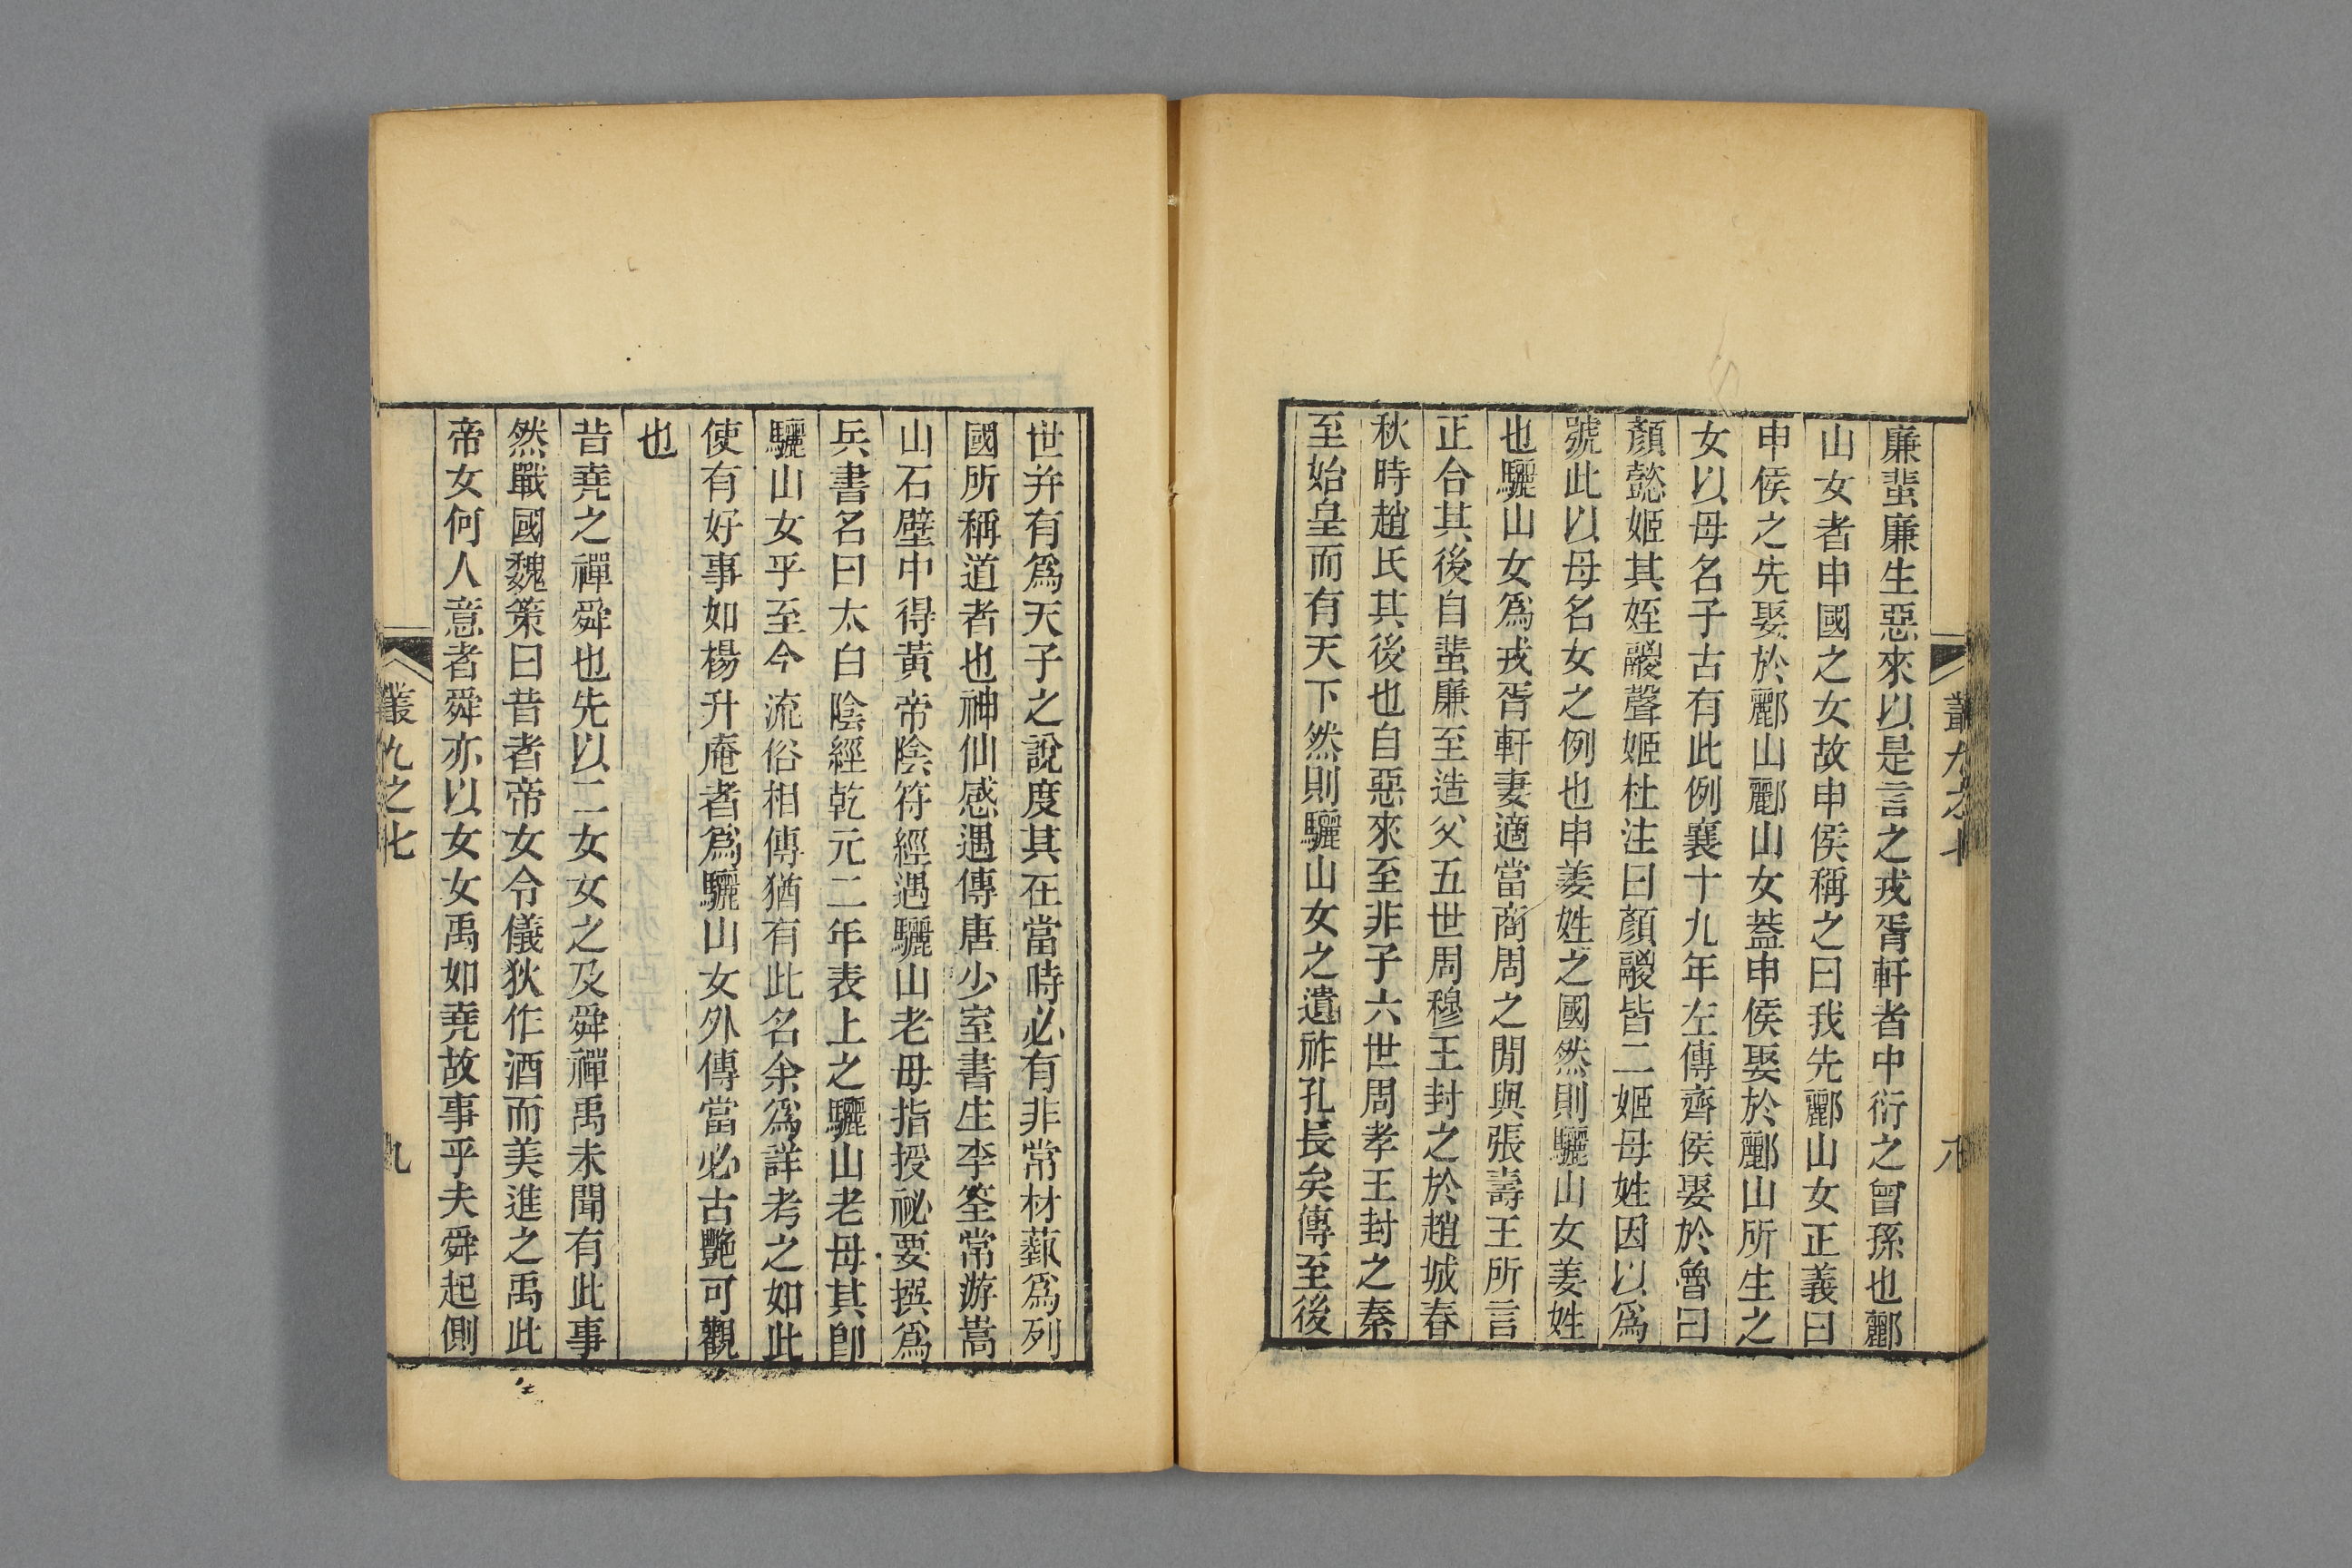 叢九之七
八
廉蜚廉生惡來以是言之戎胥軒者中衍之曾孫也酈
山女者申國之女故申侯稱之曰我先酈山女正義曰
申侯之先娶於酈山酈山女蓋申侯娶於酈山所生之
女以母名子古有此例襄十九年左傳齊侯娶於魯曰
顏懿姬其姪鬷聲姬杜注曰顏鬷皆二姬母姓因以爲
號此以母名女之例也申姜姓之國然則驪山女姜姓
也驪山女爲戎胥軒妻適當商周之閒與張壽王所言
正合其後自蜚廉至造父五世周穆王封之於趙城春
秋時趙氏其後也自惡來至非子六世周孝王封之秦
至始皇而有天下然則驪山女之遺祚孔長矣傳至後
世并有爲天子之說度其在當時必有非常材蓺爲列
國所稱道者也神仙感遇傳唐少室書生李筌常游嵩
山石壁中得黃帝陰符經遇驪山老母指授祕要撰爲
兵書名曰太白陰經乾元二年表上之驪山老母其卽
驪山女乎至今流俗相傳猶有此名余爲詳考之如此
使有好事如楊升庵者爲驪山女外傳當必古艷可觀
也
昔堯之禪舜也先以二女女之及舜禪禹未聞有此事
然戰國魏策曰昔者帝女令儀狄作酒而美進之禹此
帝女何人意者舜亦以女女禹如堯故事乎夫舜起側
叢九之七
九